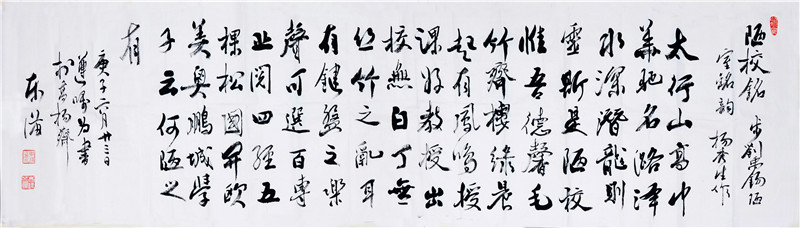 陋校銘 步劉禹錫陋
室銘韵 楊生作
太行山高中
華馳名洛澤
水深潛龍則
靈斯是陋校
惟吾德馨毛
竹齊樓綠晨
起有鳳鳴援
課好教授出
校無白丁無
丝竹之亂耳
有鍵盤之樂
聲可選百專
止閱四經五
棵松國開歐
美奥鵬城學
子云何陋之
有
庚子六月廿三日
囑为書
於高楊齋